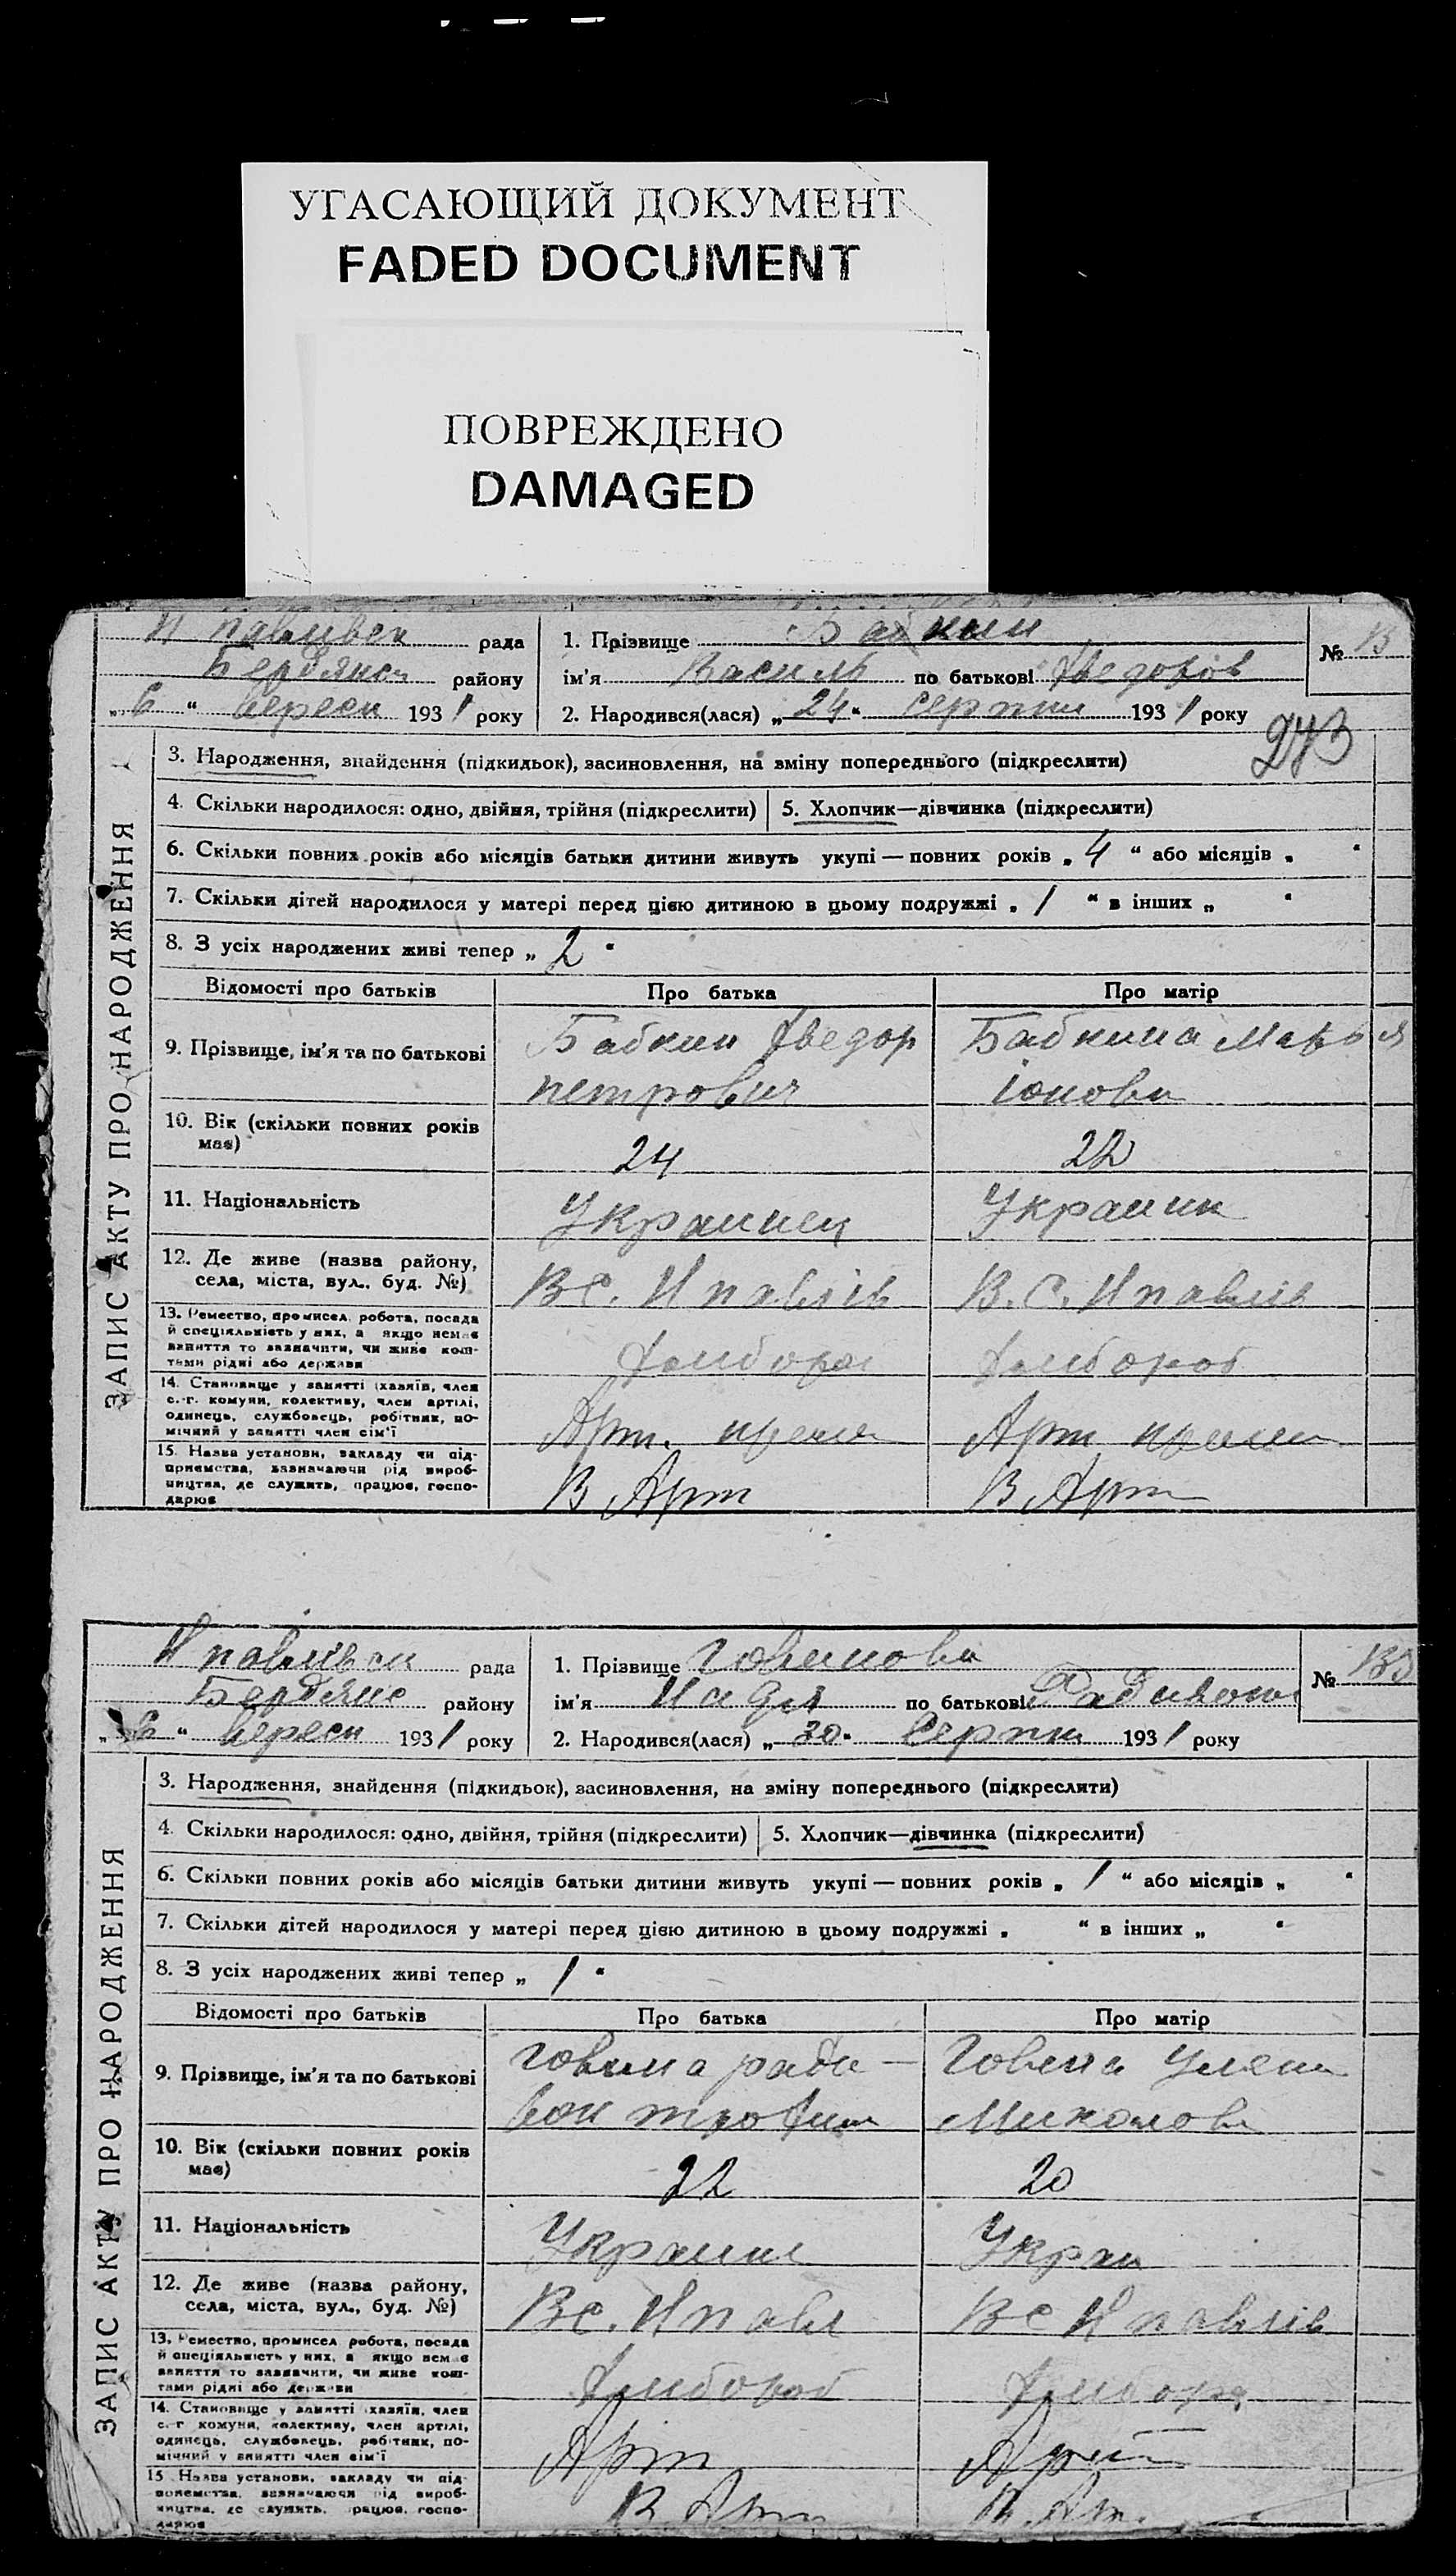 УГАСАЮЩИЙ ДОКУМЕНТ
FADED DOCUMENT
ПОВРЕЖДЕНО
DAMAGED
Н павливск рада
Бердянск району
„ 6 “ вересн 1931 року
1. Прізвище Бабкин
ім'я Василь по батькові Фведоров
2. Народився(лася) „ 24 “ серпня 1931 року
№ 13
273
ЗАПИС АКТУ ПРО НАРОДЖЕННЯ
3. Народження, знайдення (підкидьок), засиновлення, на зміну попереднього (підкреслити)
4. Скільки народилося: одно, двійня, трійня (підкреслити) 5. Хлопчик—дівчинка (підкреслити)
6. Скільки повних років або місяців батьки дитини живуть укупі — повних років „ 4 “ або місяців „ “
7. Скільки дітей народилося у матері перед цією дитиною в цьому подружжі „ 1 “ в інших „ “
8. З усіх народжених живі тепер „ 2 “
Відомості про батьків Про батька Про матір
9. Прізвище, ім'я та по батькові Бабкин Фведор Бабкина Марья
петрович іонови
10. Вік (скільки повних років
має) 24 22
11. Національність Украинец Украин
12. Де живе (назва району,
села, міста, вул., буд. №) В С. Н павлів В. С. Н павлів
13. Ремество, промисел, робота, посада
й спеціяльність у них, а якщо немає
заняття то зазначити, чи живе кош-
тами рідні або держави Хлибороб Хлибороб
14. Становище у занятті (хазяїн, член
с.-г. комуни, колективу, член артілі,
одинець, службовець, робітник, по-
мічний у занятті член сім'ї Арт. Арт.
15. Назва установи, закладу чи під-
приємства, зазначаючи рід вироб-
ництва, де служить, працює, госпо-
дарює В Арт В Арт
Н павлівск рада
Бердянс району
„ 6 “ вересн 1931 року
1. Прізвище
ім'я Надя по батькові
2. Народився(лася) „ 30 “ Серпня 1931 року
№
ЗАПИС АКТУ ПРО НАРОДЖЕННЯ
3. Народження, знайдення (підкидьок), засиновлення, на зміну попереднього (підкреслити)
4. Скільки народилося: одно, двійня, трійня (підкреслити) 5. Хлопчик—дівчинка (підкреслити)
6. Скільки повних років або місяців батьки дитини живуть укупі — повних років „ 1 “ або місяців „ “
7. Скільки дітей народилося у матері перед цією дитиною в цьому подружжі „ “ в інших „ “
8. З усіх народжених живі тепер „ 1 “
Відомості про батьків Про батька Про матір
9. Прізвище, ім'я та по батькові ради— Уляна
вон трофим Миколови
10. Вік (скільки повних років
має) 22 20
11. Національність Украин Укра
12. Де живе (назва району,
села, міста, вул., буд. №) В с. Н павл В с Н павлів
13. Ремество, промисел, робота, посада
й спеціяльність у них, а якщо немає
заняття то зазначити, чи живе кош-
тами рідні або держави Хлибороб Хлибора
14. Становище у занятті (хазяїн, член
с.-г. комуни, колективу, член артілі,
одинець, службовець, робітник, по-
мічний у занятті член сім'ї Арт Арт
15. Назва установи, закладу чи під-
приємства, зазначаючи рід вироб-
ництва, де служить, працює, госпо-
дарює В Арт В. Арт.